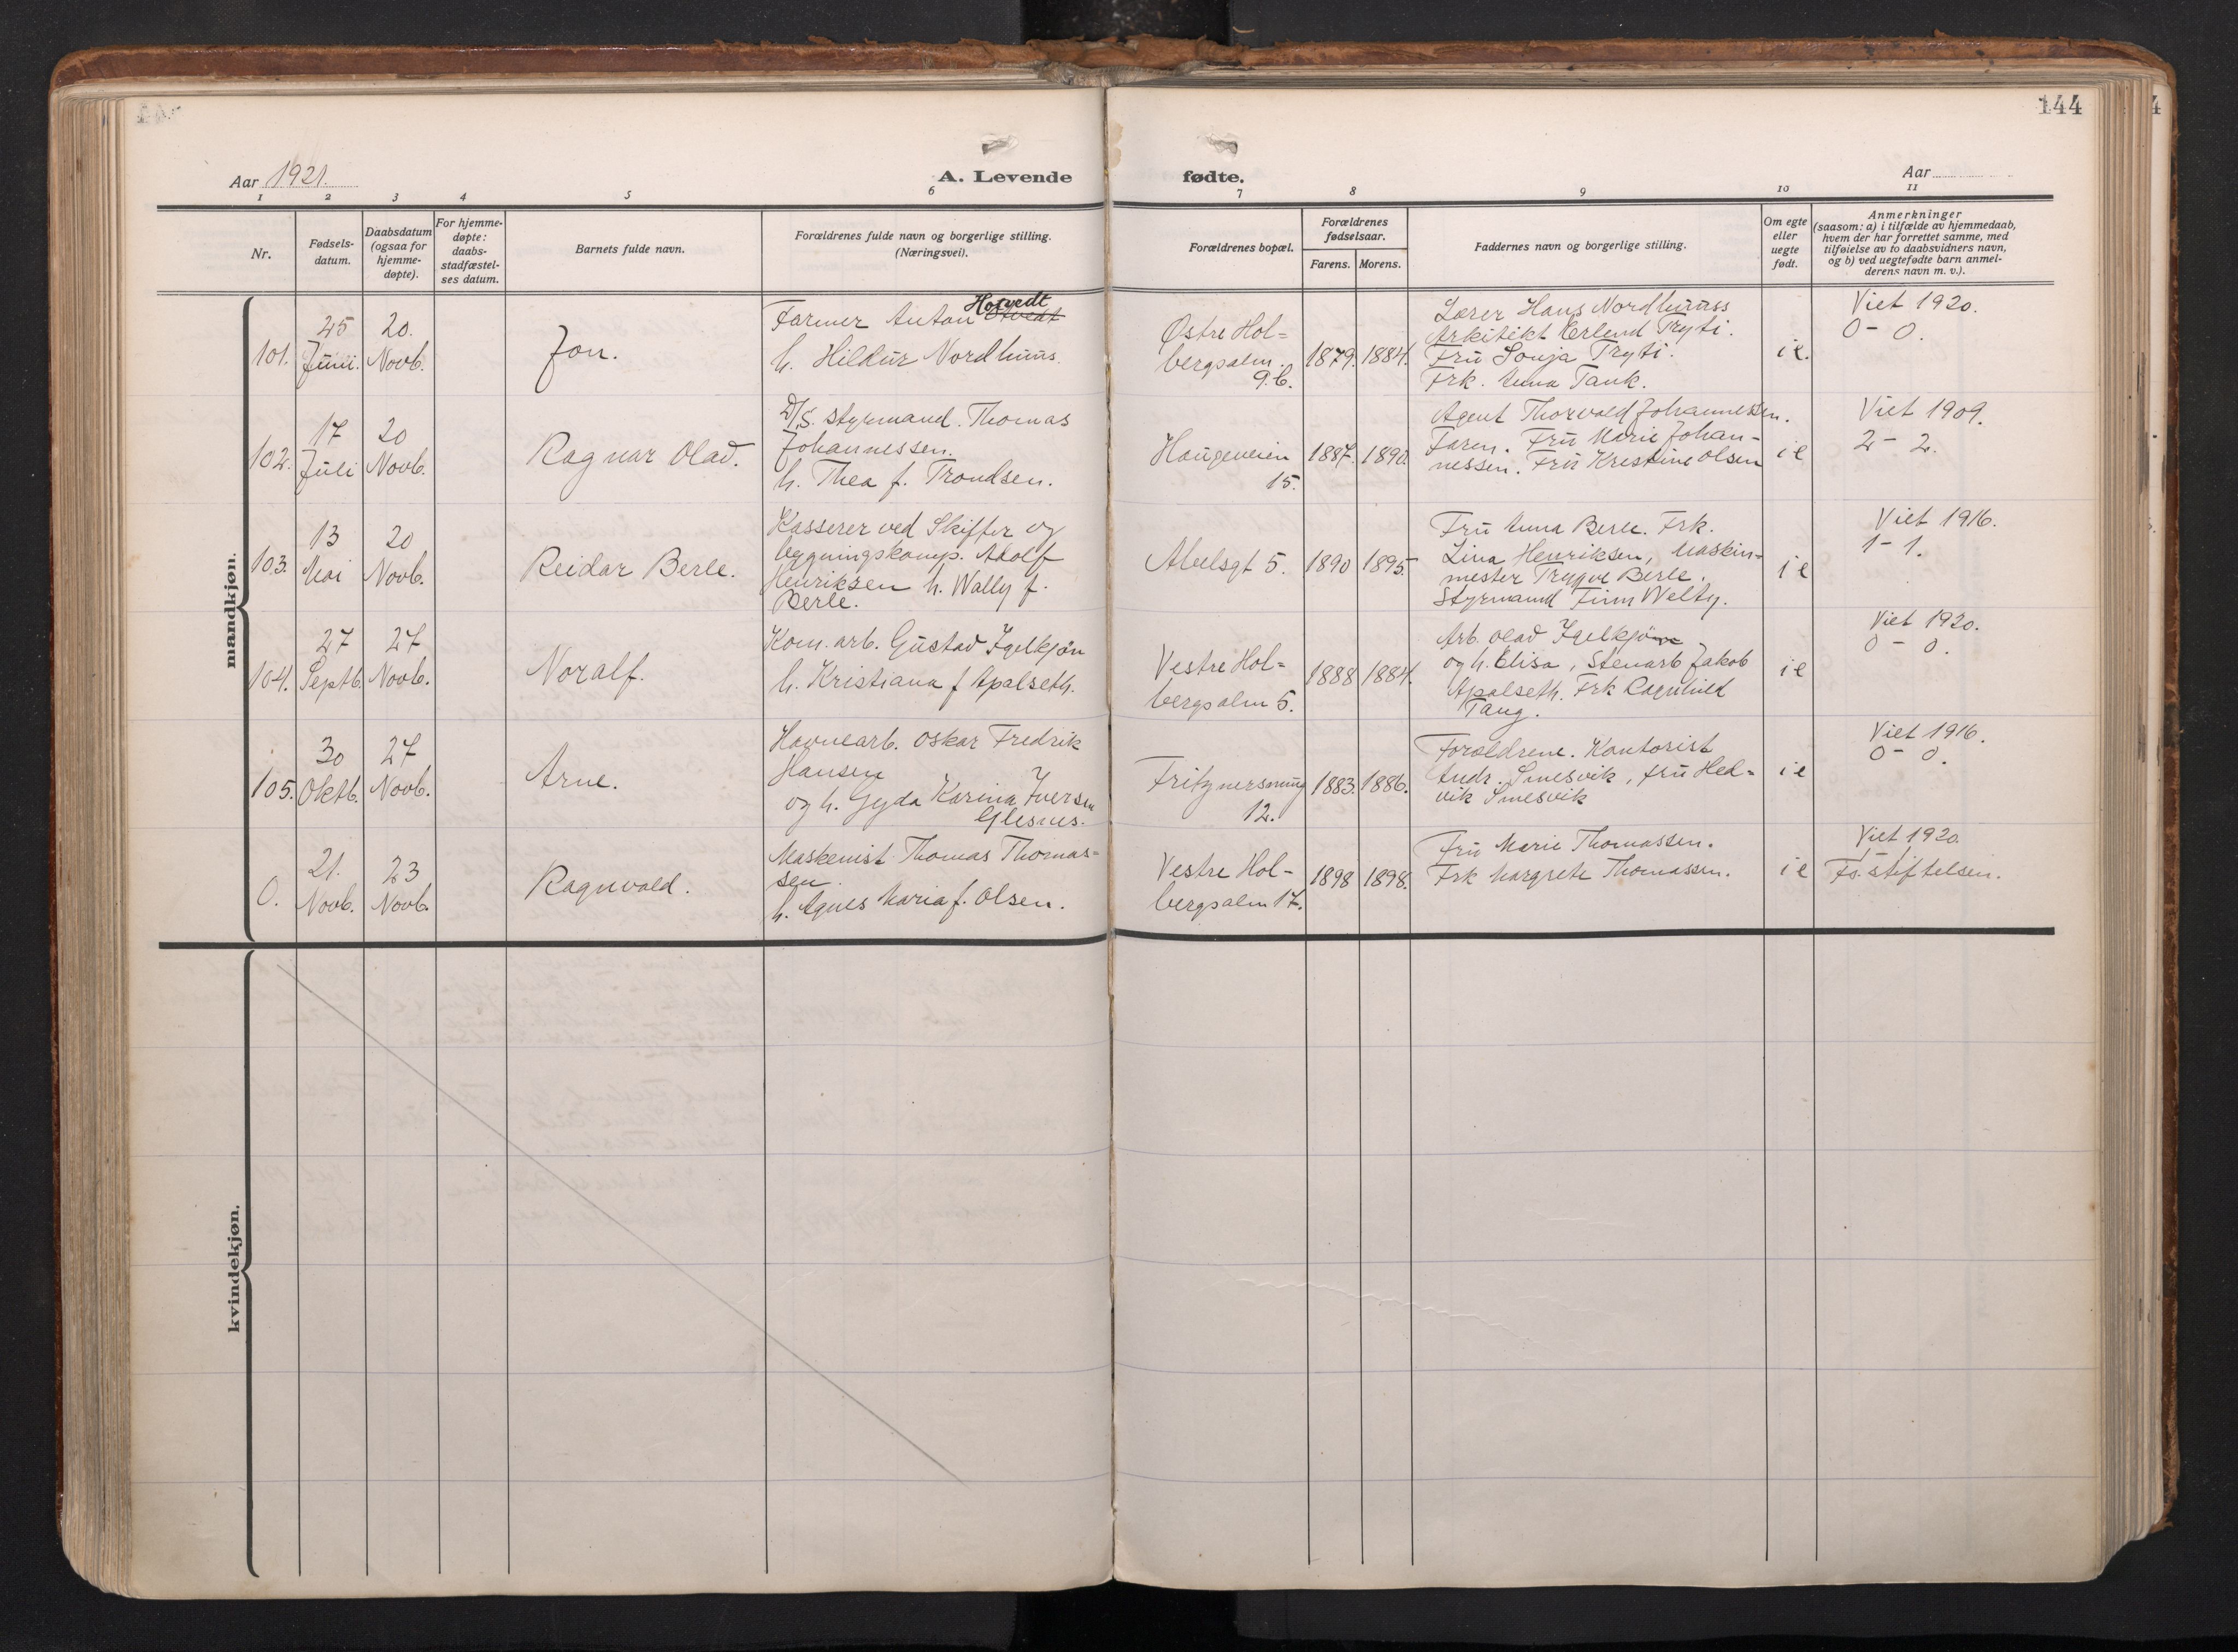 144
Aar 1921.
A. Levende fødte.
Aar
1 2 3 4 5 6 7 8 9 10 11
Nr.
Fødsels-
datum.
Daabsdatum
(ogsaa for
hjemme-
døpte).
For hjemme-
døpte:
daabs-
stadfæstel-
ses datum.
Barnets fulde navn.
Forældrenes fulde navn og borgerlige stilling.
(Næringsvei).
Forældrenes bopæl.
Forældrenes
fødselsaar.
Farens. Morens.
Faddernes navn og borgerlige stilling.
Om egte
eller
uegte
født.
Anmerkninger
(saasom: a) i tilfælde av hjemmedaab,
hvem der har forrettet samme, med
tilføielse av to daabsvidners navn,
og b) ved uegtefødte barn anmel-
derens navn m. v.).
mandkjøn.
101.
25
Juni.
20.
Novb.
Jon.
Hotvedt
Farmer Anton
h. Hildur Nordhuus.
Østre Hol-
bergsalm.
9b.
1879. 1884.
Lærer Hans Nordhuuss
Arkitekt Erlend Tryti.
Fru Sonja Tryti.
Frk. Anna Tank.
ie.
Viet 1920.
0 - 0.
102.
17
Juli
20
Novb.
Ragnar Olav.
D/S. styrmand. Thomas
Johannessen.
h. Thea f. Trondsen.
Haugeveien
15.
1887. 1890.
Agent Thorvald Johannessen.
Faren. Fru Marie Johan-
nessen. Fru Kristine Olsen
ie
Viet 1909.
2 - 2.
103.
13
Mai
20
Novb.
Reidar Berle.
Kasserer ved Skifter og
bygningskomp. Adolf
Henriksen h. Wally f.
Berle.
Abelsgt 5.
1890 1895.
Fru Anna Berle. Frk.
Lina Henriksen, Maskin-
mester Trygve Berle.
Styrmand Finn Welty.
ie
Viet 1916.
1 - 1.
104.
27
Septb.
27
Novb.
Noralf.
Kom. arb. Gustav Igelkjøn
h. Kristiana f Apalseth.
Vestre Hol-
bergsalm 5.
1888 1884.
Arb. Olav Igelkjøn
og h. Elisa, Stenarb Jakob
Apalseth. Frk Ragnhild
Tang.
ie
Viet 1920.
0 - 0.
105.
30
Oktb.
27
Novb.
Arne.
Havnearb. Oskar Fredrik
Hansen
og h. Gyda Karina Iversen
Glesnes.
Fritznersmug
12.
1883. 1886.
Forældrene. Kontorist
Andr. Smesvik, fru Hed-
vik Smesvik
ie
Viet 1916.
0 - 0.
0.
21.
Novb.
23
Novb.
Ragnvald.
Maskenist Thomas Thomas-
sen.
h. Agnes Maria f. Olsen.
Vestre Hol-
bergsalm 17.
1898 1898.
Fru Marie Thomassen.
Frk Margrete Thomassen.
ie
Viet 1920.
Fø. stiftelsen.
kvindekjøn.